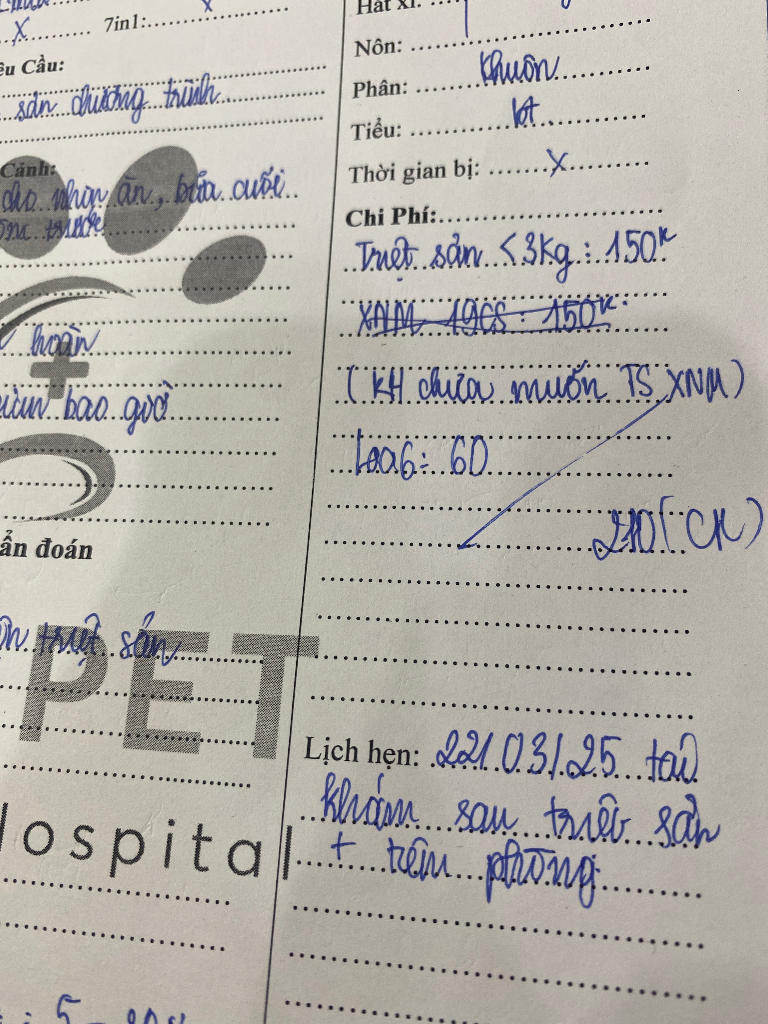 x 7in1: x
êu Cầu:
sản chương trình
Cảnh:
cho nhịn ăn, bữa cuối
hôm trước
hoàn
bao gưởi
ẩn đoán
triệt sản
PET
Hospital
Hắt xì:
Nôn:
Phân: khuôn
Tiểu: bt
Thời gian bị: x
Chi Phí:
Triệt sản < 3kg: 150k
XNM 19CS: 150k
(KH chưa muốn TS XNM)
Loa6: 60
210 (CK)
Lịch hẹn: 22/03/25 tái
khám sau triệt sản
+ tiêm phòng